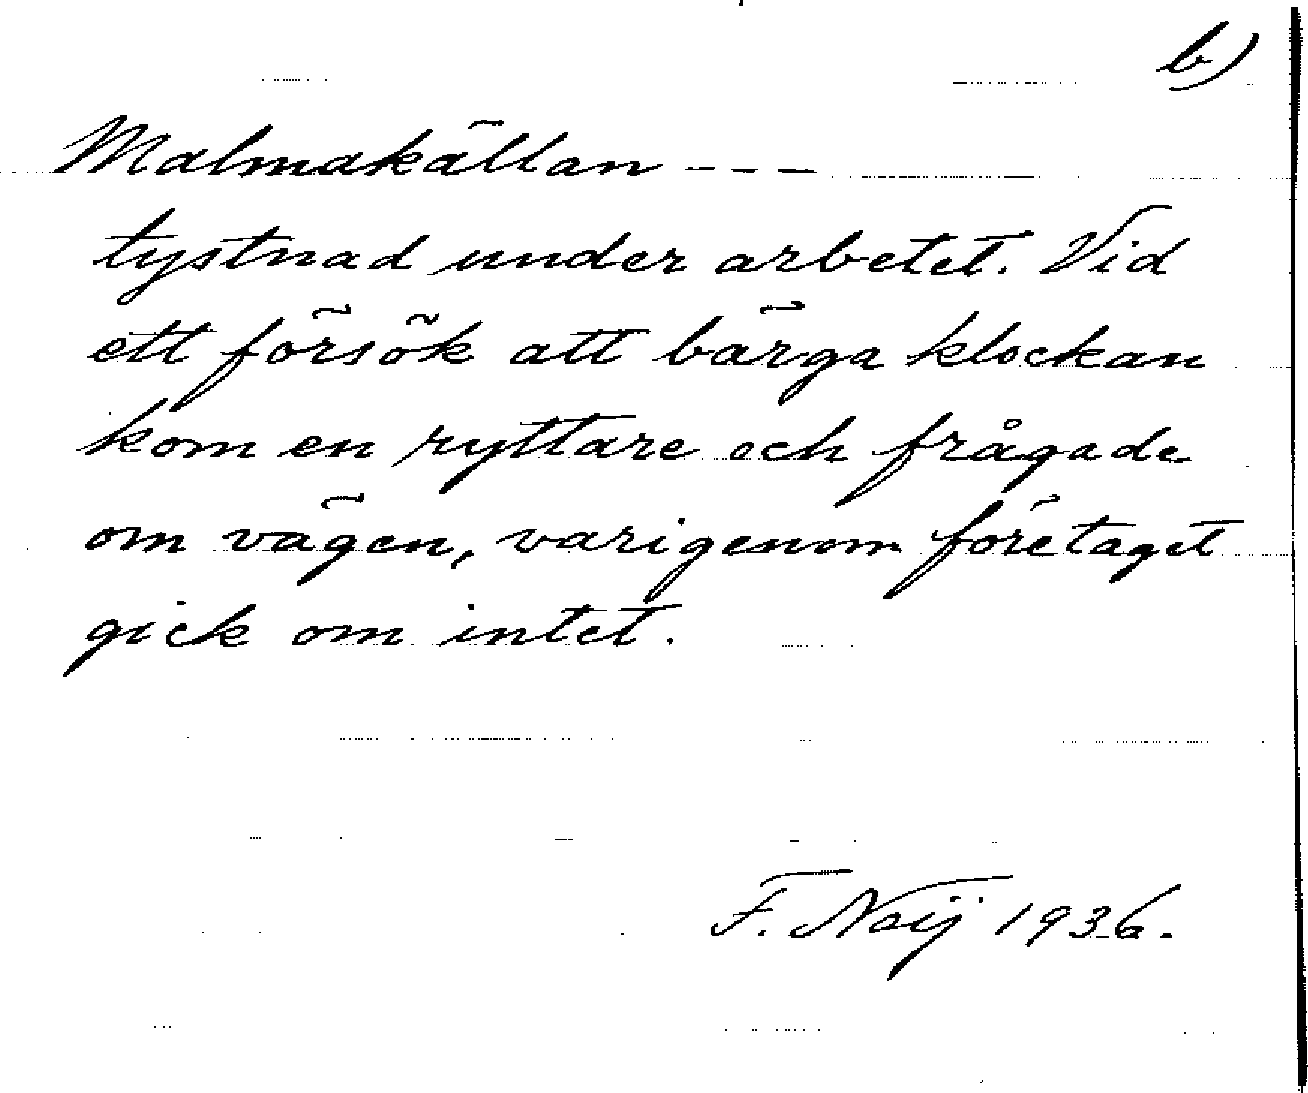 b)
Malmakällan - - -
tystnad under arbetet. Vid
ett försök att bärga klockan
kom en ryttare och frågade
om vägen, varigenom företaget
gick om intet.
F. Neij 1936.